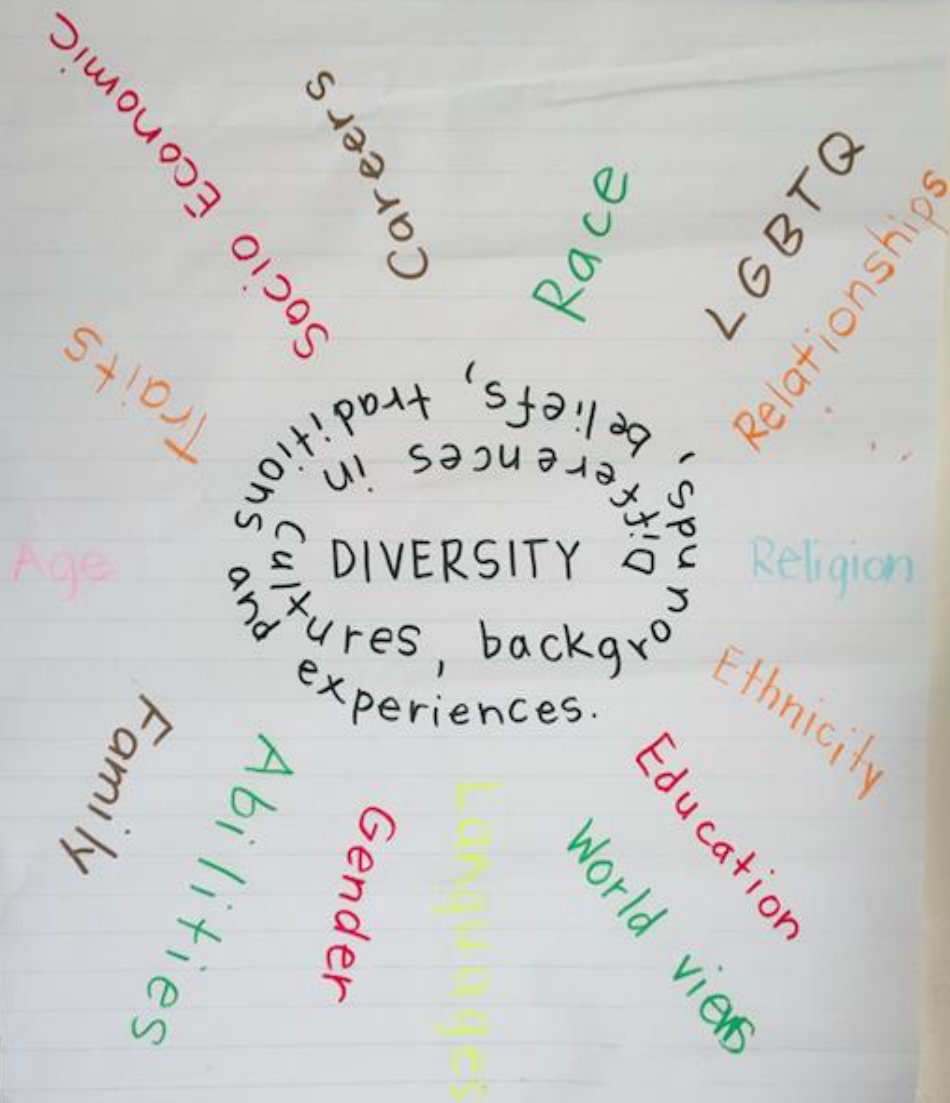 DIVERSITY
Differences in cultures, backgrounds, beliefs, traditions and experiences.
Careers
Race
LGBTQ
Relationships
Religion
Ethnicity
Education
World views
Languages
Gender
Abilities
Family
Age
Traits
Socio Economic